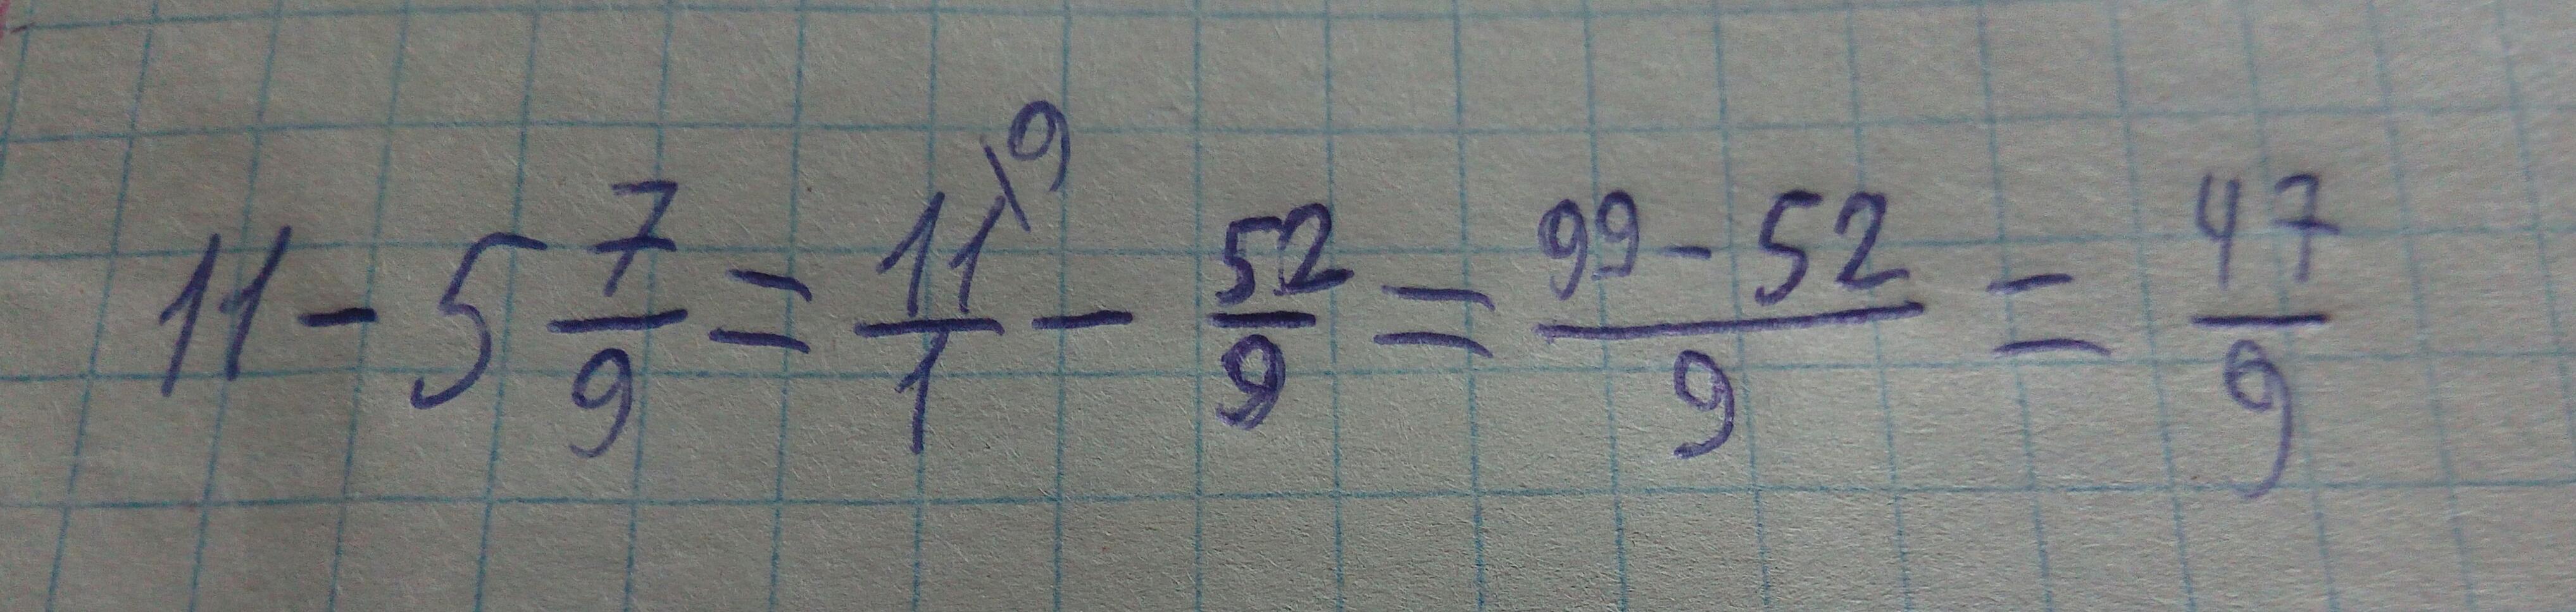 11 - 5 7/9 = 11\9/1 - 52/9 = 99-52/9 = 47/9